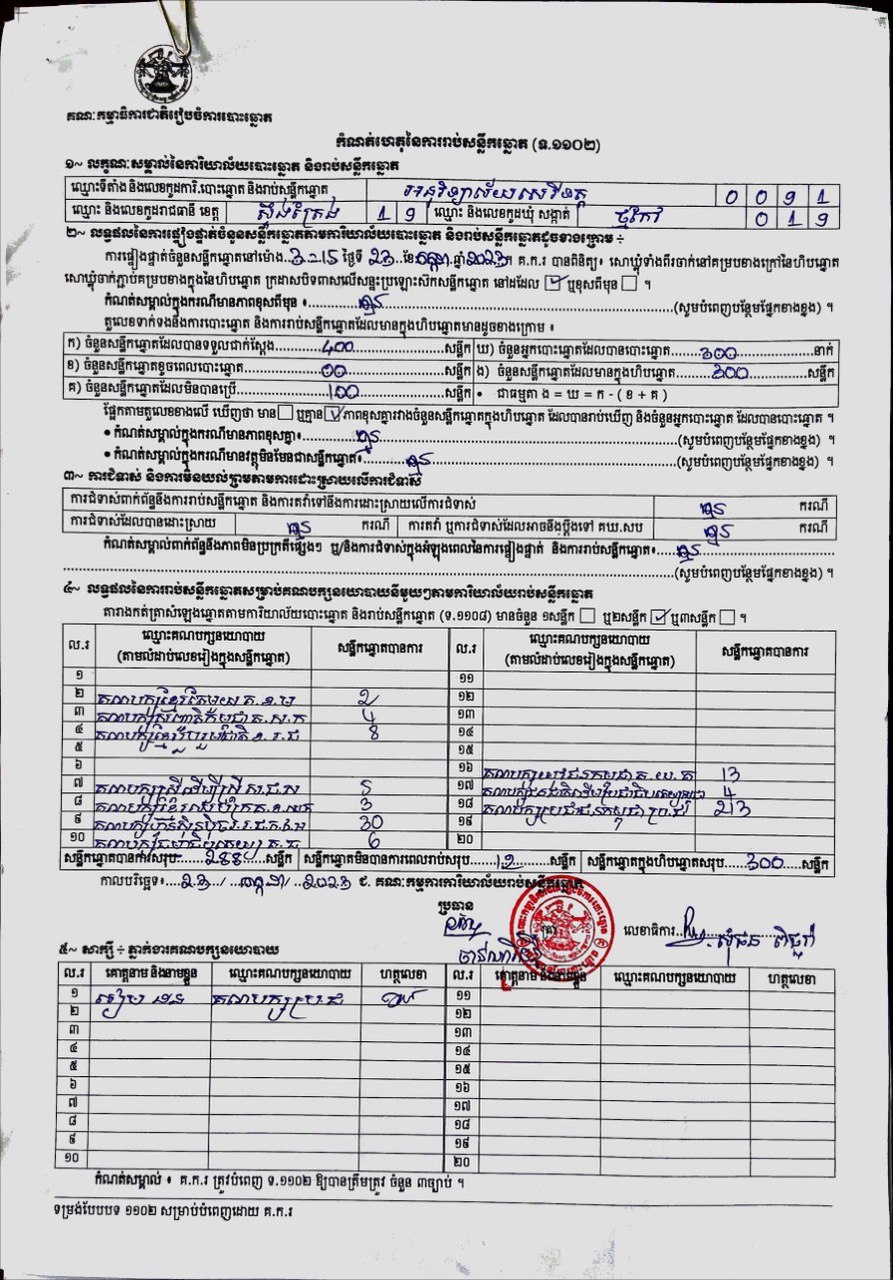 គណៈកម្មាធិការជាតិរៀបចំការបោះឆ្នោត
កំណត់ហេតុនៃការរាប់សន្លឹកឆ្នោត (ទ.១១០២)
១~ លក្ខណៈសម្គាល់នៃការិយាល័យបោះឆ្នោត និងរាប់សន្លឹកឆ្នោត
ឈ្មោះទីតាំង និងលេខកូដការិ.បោះឆ្នោត និងរាប់សន្លឹកឆ្នោត អនុវិទ្យាល័យ 0 0 9 1
ឈ្មោះ និងលេខកូដរាជធានី ខេត្ត ស្ទឹងត្រែង 1 9 ឈ្មោះ និងលេខកូដឃុំ សង្កាត់ ថ្មកែវ 0 1 9
២~ លទ្ធផលនៃការផ្ទៀងផ្ទាត់ចំនួនសន្លឹកឆ្នោតតាមការិយាល័យបោះឆ្នោត និងរាប់សន្លឹកឆ្នោតដូចខាងក្រោម ÷
ការផ្ទៀងផ្ទាត់ចំនួនសន្លឹកឆ្នោតនៅម៉ោង..3-15 ថ្ងៃទី 23 ខែកក្កដា ឆ្នាំ2023។ គ.ក.រ បានពិនិត្យ៖ សោឃ្លុំទាំងពីរចាក់នៅគម្របខាងក្រៅនៃហិបឆ្នោត
សោឃ្លុំចាក់ភ្ជាប់គម្របខាងក្នុងនៃហិបឆ្នោត ក្រដាសបិទពាសលើសន្ទះប្រឡោះស៊កសន្លឹកឆ្នោត នៅដដែល ✓ ឬខុសពីមុន ។
កំណត់សម្គាល់ក្នុងករណីមានភាពខុសពីមុន ៖ គ្មាន (សូមបំពេញបន្ថែមផ្នែកខាងខ្នង) ។
តួលេខទាក់ទងនឹងការបោះឆ្នោត និងការរាប់សន្លឹកឆ្នោតដែលមានក្នុងហិបឆ្នោតមានដូចខាងក្រោម ៖
ក) ចំនួនសន្លឹកឆ្នោតដែលបានទទួលជាក់ស្តែង 400 សន្លឹក ឃ) ចំនួនអ្នកបោះឆ្នោតដែលបានបោះឆ្នោត 300 នាក់
ខ) ចំនួនសន្លឹកឆ្នោតខូចពេលបោះឆ្នោត 00 សន្លឹក ង) ចំនួនសន្លឹកឆ្នោតដែលមានក្នុងហិបឆ្នោត 300 សន្លឹក
គ) ចំនួនសន្លឹកឆ្នោតដែលមិនបានប្រើ 100 សន្លឹក • ជាធម្មតា ង = ឃ = ក - ( ខ + គ )
ផ្អែកតាមតួលេខខាងលើ ឃើញថា មាន ឬគ្មាន ✓ ភាពខុសគ្នារវាងចំនួនសន្លឹកឆ្នោតក្នុងហិបឆ្នោត ដែលបានរាប់ឃើញ និងចំនួនអ្នកបោះឆ្នោត ដែលបានបោះឆ្នោត ។
• កំណត់សម្គាល់ក្នុងករណីមានភាពខុសគ្នា៖ គ្មាន (សូមបំពេញបន្ថែមផ្នែកខាងខ្នង) ។
• កំណត់សម្គាល់ក្នុងករណីមានវត្ថុមិនមែនជាសន្លឹកឆ្នោត៖ គ្មាន (សូមបំពេញបន្ថែមផ្នែកខាងខ្នង) ។
៣~ ការជំទាស់ និងការមិនយល់ព្រមតាមការដោះស្រាយលើការជំទាស់
ការជំទាស់ពាក់ព័ន្ធនឹងការរាប់សន្លឹកឆ្នោត និងការតវ៉ាទៅនឹងការដោះស្រាយលើការជំទាស់ គ្មាន ករណី
ការជំទាស់ដែលបានដោះស្រាយ គ្មាន ករណី ការតវ៉ា ឬការជំទាស់ដែលអាចនឹងប្តឹងទៅ គឃ.សប គ្មាន ករណី
កំណត់សម្គាល់ពាក់ព័ន្ធនឹងភាពមិនប្រក្រតីផ្សេងៗ ឬ/និងការជំទាស់ក្នុងអំឡុងពេលនៃការផ្ទៀងផ្ទាត់ និងការរាប់សន្លឹកឆ្នោត៖ គ្មាន
(សូមបំពេញបន្ថែមផ្នែកខាងខ្នង) ។
៤~ លទ្ធផលនៃការរាប់សន្លឹកឆ្នោតសម្រាប់គណបក្សនយោបាយនីមួយៗតាមការិយាល័យរាប់សន្លឹកឆ្នោត
តារាងកត់ត្រាសំឡេងឆ្នោតតាមការិយាល័យបោះឆ្នោត និងរាប់សន្លឹកឆ្នោត (ទ.១១០៨) មានចំនួន ១សន្លឹក ឬ២សន្លឹក ✓ ឬ៣សន្លឹក ។
ល.រ ឈ្មោះគណបក្សនយោបាយ (តាមលំដាប់លេខរៀងក្នុងសន្លឹកឆ្នោត) សន្លឹកឆ្នោតបានការ ល.រ ឈ្មោះគណបក្សនយោបាយ (តាមលំដាប់លេខរៀងក្នុងសន្លឹកឆ្នោត) សន្លឹកឆ្នោតបានការ
១ ១១
២ គណបក្សខ្មែរ 2 ១២
៣ គណបក្ស 4 ១៣
៤ គណបក្សខ្មែររួបរួមជាតិ 8 ១៤
៥ ១៥
៦ ១៦ គណបក្ស 13
៧ គណបក្សស្ត្រីដើម្បីស្ត្រី 5 ១៧ គណបក្ស 4
៨ គណបក្ស 3 ១៨ គណបក្សប្រជាជនកម្ពុជា 213
៩ គណបក្សហ៊្វុនស៊ិនប៉ិច 30 ១៩
១០ គណបក្ស 6 ២០
សន្លឹកឆ្នោតបានការសរុប 288 សន្លឹក សន្លឹកឆ្នោតមិនបានការពេលរាប់សរុប 12 សន្លឹក សន្លឹកឆ្នោតក្នុងហិបឆ្នោតសរុប 300 សន្លឹក
កាលបរិច្ឆេទ៖ 23 / កក្កដា / 2023 ជ. គណៈកម្មការការិយាល័យរាប់សន្លឹកឆ្នោត
ប្រធាន
លេខាធិការ
៥~ សាក្សី ÷ ភ្នាក់ងារគណបក្សនយោបាយ
ល.រ គោត្តនាម និងនាមខ្លួន ឈ្មោះគណបក្សនយោបាយ ហត្ថលេខា ល.រ គោត្តនាម និងនាមខ្លួន ឈ្មោះគណបក្សនយោបាយ ហត្ថលេខា
១ គណបក្សប្រជា ១១
២ ១២
៣ ១៣
៤ ១៤
៥ ១៥
៦ ១៦
៧ ១៧
៨ ១៨
៩ ១៩
១០ ២០
កំណត់សម្គាល់ ៖ គ.ក.រ ត្រូវបំពេញ ទ.១១០២ ឱ្យបានត្រឹមត្រូវ ចំនួន ៣ច្បាប់ ។
ទម្រង់បែបបទ ១១០២ សម្រាប់បំពេញដោយ គ.ក.រ